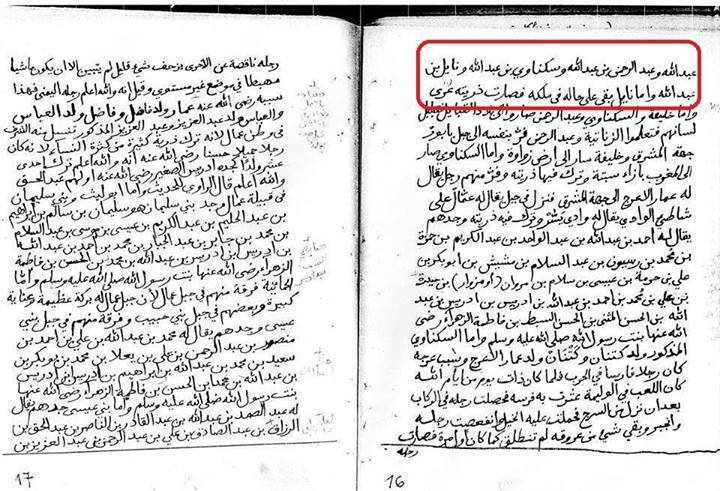 عبد الله وعبد الرحمن بن عبد الله وسكناوي بن عبد الله ونايل بن
عبد الله واما نايل بقي على حاله في ملكه فصارت ذريته
واما خليفة والسكناوي وعبد الرحمن صاروا الى بلاد
لسانهم فتعلموا الزناتية وعبد الرحمن فر بنفسه الى جبل
جهة المشرق وخليفة سار الى ارض زواوة واما السكناوي صار
الى المغرب بازاء سبتة وترك فيها ذريته وفر منهم رجل يقال
له عمار الاعرج الى جهة المشرق فنزل في جبل يقال له عمال على
شاطئ الوادي يقال له وادي وترك فيه ذريته وجدهم
يقال له احمد بن عبد الله بن عبد الواحد بن عبد الكريم بن
بن محمد بن بن عبد السلام بن مشيش بن ابو بكر بن
علي بن حرمة بن عيسى بن سلام بن مروان (او مزوار) بن حيدرة
بن علي بن محمد بن احمد بن عبد الله بن ادريس بن ادريس بن عبد
الله بن الحسن المثنى بن الحسن السبط بن فاطمة الزهراء رضي
الله عنها بنت رسول الله صلى الله عليه وسلم واما السكناوي
المذكور ولد كتنان وكتنان ولد عمار الاعرج وسبب عرجه
كان رجلا فارسا في الحرب فلما كان ذات يوم من ايام الله
كان اللعب في الوليمة عثرت به فرسه فحصلت رجله في الركاب
بعد ان نزل من السرج فحملت عليه الخيل وانفعصت رجله
وانجبر وبقي شيء من عروقه لم تنطلق كما كان اول مرة فصارت
رجله
16
رجله ناقصة عن الاخرى بزحف شيء قليل لم يتبين الا ان يكون ماشيا
مهبطا في موضع غير مستوي وقيل انه والله اعلم رجله اليمنى فهذا
سببه رضي الله عنه عمار ولد فاضل وفاضل ولد العباس
والعباس ولد عبد العزيز وعبد العزيز المذكور
في وطن عمال لانه ترك ذرية كثيرة من كثرة النساء لانه كان
رجلا جميلا حسنا رضي الله عنه انه والله اعلم ترك احدى
عشر ولدا الجد ادريس الصغير رضي الله عنه اولهم عبد الحق
والله اعلم قال الراوي الحديث واما ابو الليث وبني سليمان
في قبيلة عمال وجد بني سليمان هو سليمان بن سالم بن ابراهيم
بن عبد الحليم بن عبد الكريم بن عيسى بن موسى بن عبد السلام
بن محمد بن جابر بن عبد الجبار بن محمد بن احمد بن عبد الله
بن ادريس بن ادريس بن عبد الله بن محمد بن الحسن بن فاطمة
الزهراء رضي الله عنها بنت رسول الله صلى الله عليه وسلم واما
فرقة منهم في جبل عمال لان جبل عمال له بركة عظيمة وعناية
كبيرة وبعضهم في جبل بني حبيب وفرقة منهم في جبل بني
عيسى وجدهم يقال له محمد بن عبد الله بن علي بن احمد بن
منصور بن عبد الرحمن بن علي بن يعلا بن محمد بن بوبكر بن
سعيد بن محمد بن عبد الله بن ابراهيم بن ادريس بن ادريس
بن عبد الله بن محمد بن الحسن بن فاطمة الزهراء رضي الله عنها
بنت رسول الله صلى الله عليه وسلم واما بني عيسى جدهم يقال
له عبد الصمد بن عبد الله بن عبد القادر بن الناصر بن عبد الحق بن
الرزاق بن عبد الصادق بن علي بن عبد الرحمن بن عبد العزيز بن
17